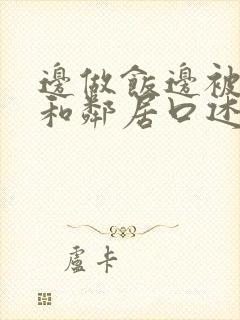 邊做飯邊被
和鄰居口述
盧卡